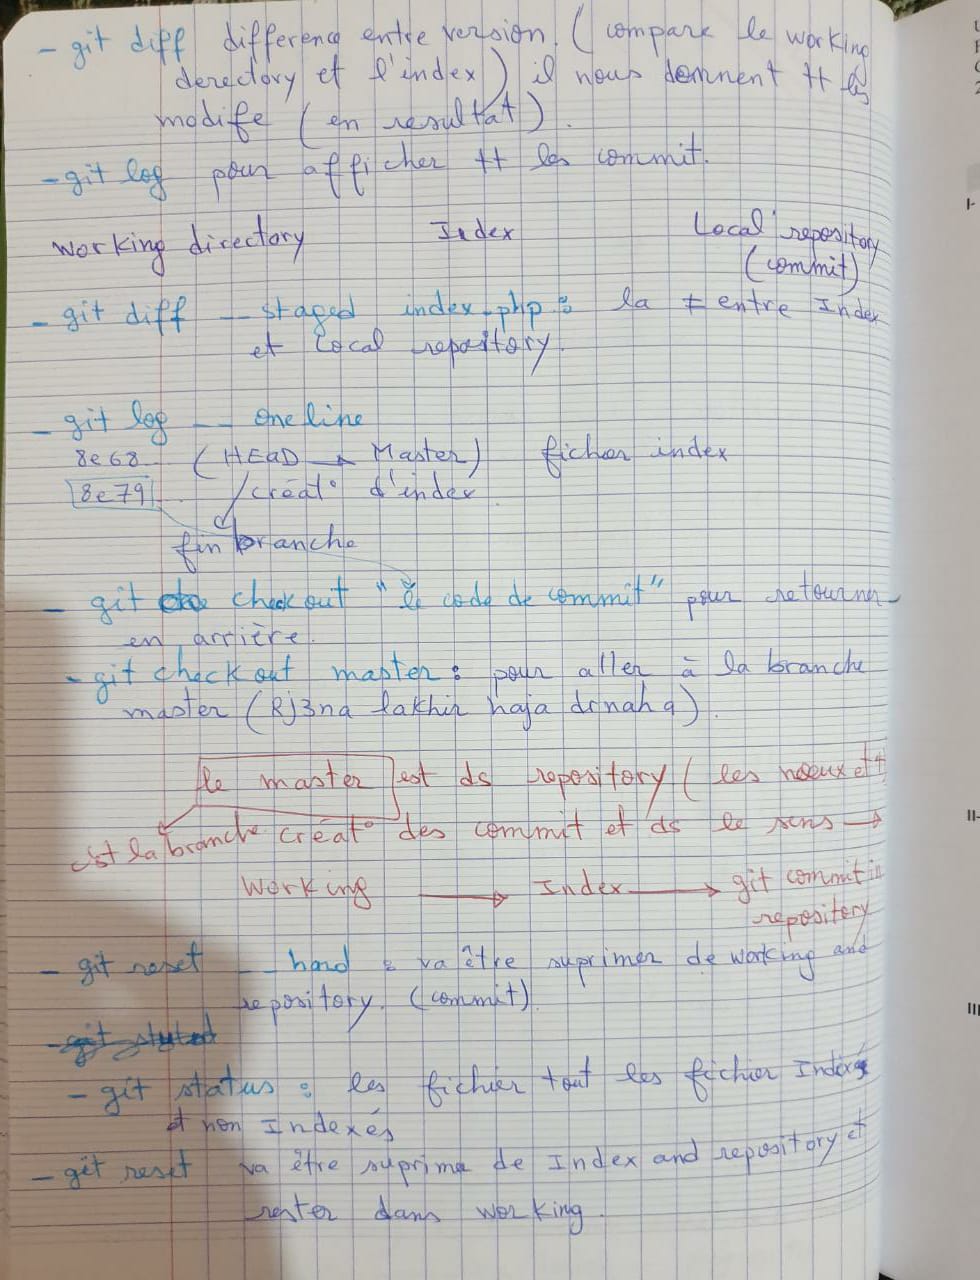 - git diff difference entre version (compare le working
derectory et l'index) il nous donnent tt les
modife (en resultat).
- git log pour afficher tt les commit.
working directory Index Local repository
(commit)
- git diff -- staged index.php : la ≠ entre Index
et Local repository.
- git log -- oneline
8e68 (HEAD → Master) fichier index
8e79 créat° d'index
fin branche
- git checkout "le code de commit" pour retourner
en arrière.
- git check out master : pour aller à la branche
master (Rj3na lakhir haja drnaha)
le master est ds repository (les noeux et
c'est la branche créat° des commit et ds le sens →
Working → Index → git commit in
repository
- git reset -- hard : va être suprimer de working and
repository. (commit)
- git status : les fichier tout les fichier Indexés
et non Indexés
- git reset va être suprime de Index and repository et
rester dans working.
I-
II-
III